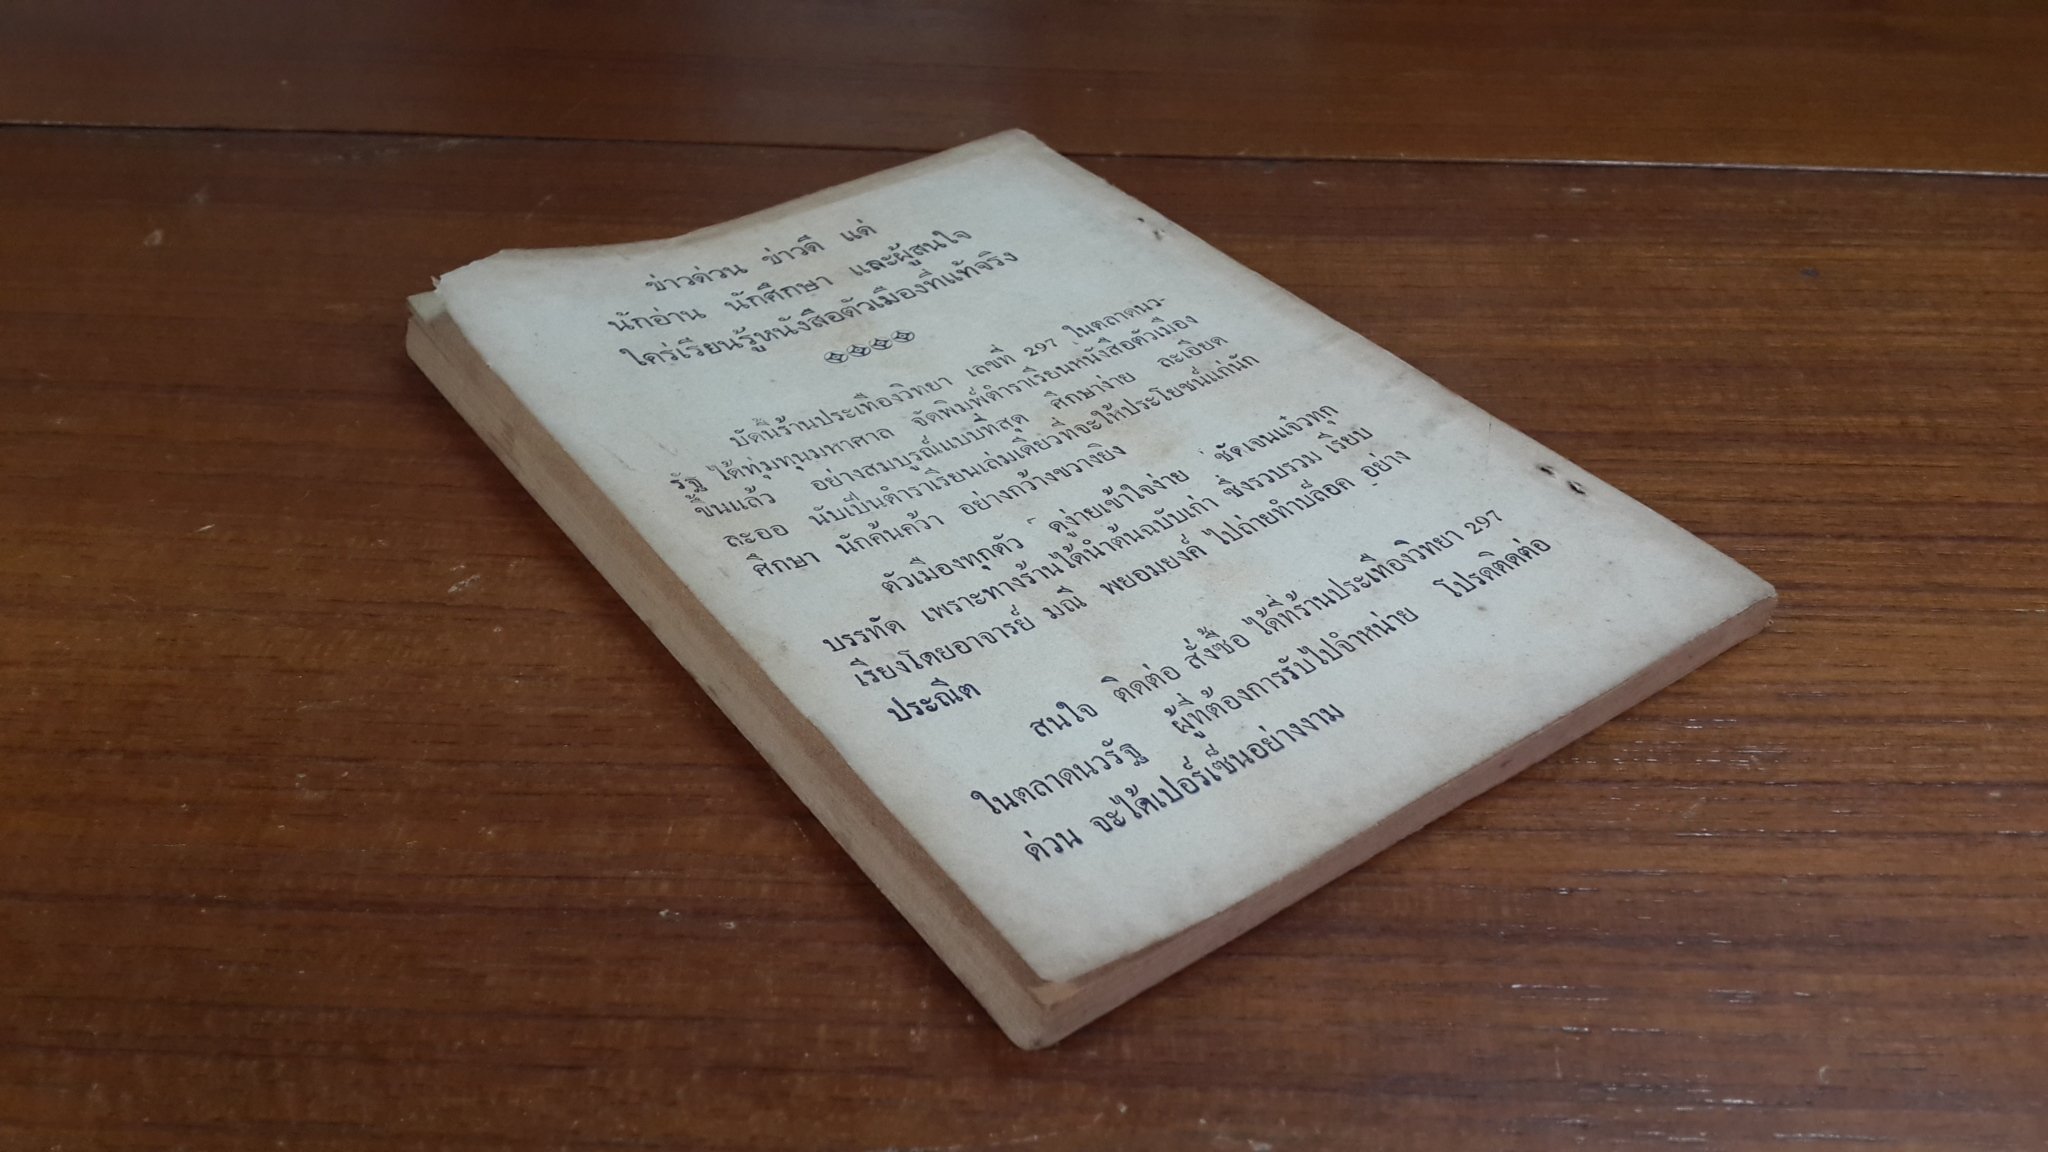 ข่าวด่วน ข่าวดี แด่
นักอ่าน นักศึกษา และผู้สนใจ
ใคร่เรียนรู้หนังสือตัวเมืองที่แท้จริง
บัดนี้ร้านประเทืองวิทยา เลขที่ 297 ในตลาดนว-
รัฐ ได้ทุ่มทุนมหาศาล จัดพิมพ์ตำราเรียนหนังสือตัวเมือง
ขึ้นแล้ว อย่างสมบูรณ์แบบที่สุด ศึกษาง่าย ละเอียด
ละออ นับเป็นตำราเรียนเล่มเดียวที่จะให้ประโยชน์แก่นัก
ศึกษา นักค้นคว้า อย่างกว้างขวางยิ่ง
ตัวเมืองทุกตัว ดูง่ายเข้าใจง่าย ชัดเจนแจ๋วทุก
บรรทัด เพราะทางร้านได้นำต้นฉบับเก่า ซึ่งรวบรวม เรียบ
เรียงโดยอาจารย์ มณี พยอมยงค์ ไปถ่ายทำบล็อค อย่าง
ประณีต
สนใจ ติดต่อ สั่งซื้อ ได้ที่ร้านประเทืองวิทยา 297
ในตลาดนวรัฐ ผู้ที่ต้องการรับไปจำหน่าย โปรดติดต่อ
ด่วน จะได้เปอร์เซ็นอย่างงาม